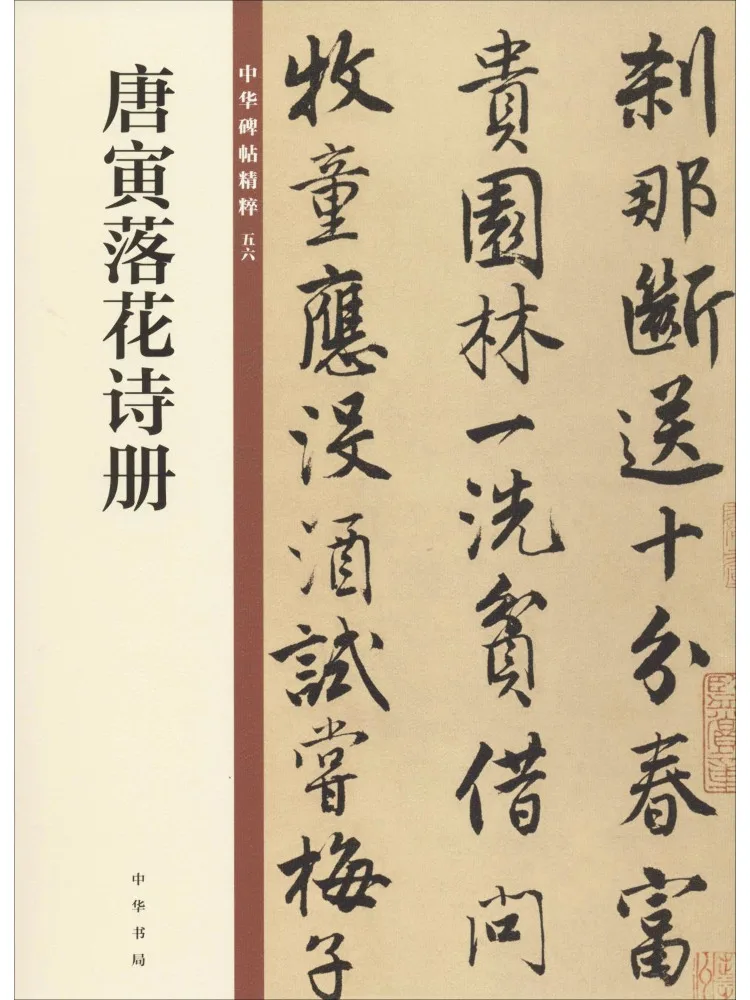 刹那斷送十分春富
貴園林一洗貧借問
牧童應没酒試嘗梅子
中华碑帖精粹 五六
唐寅落花诗册
中华书局